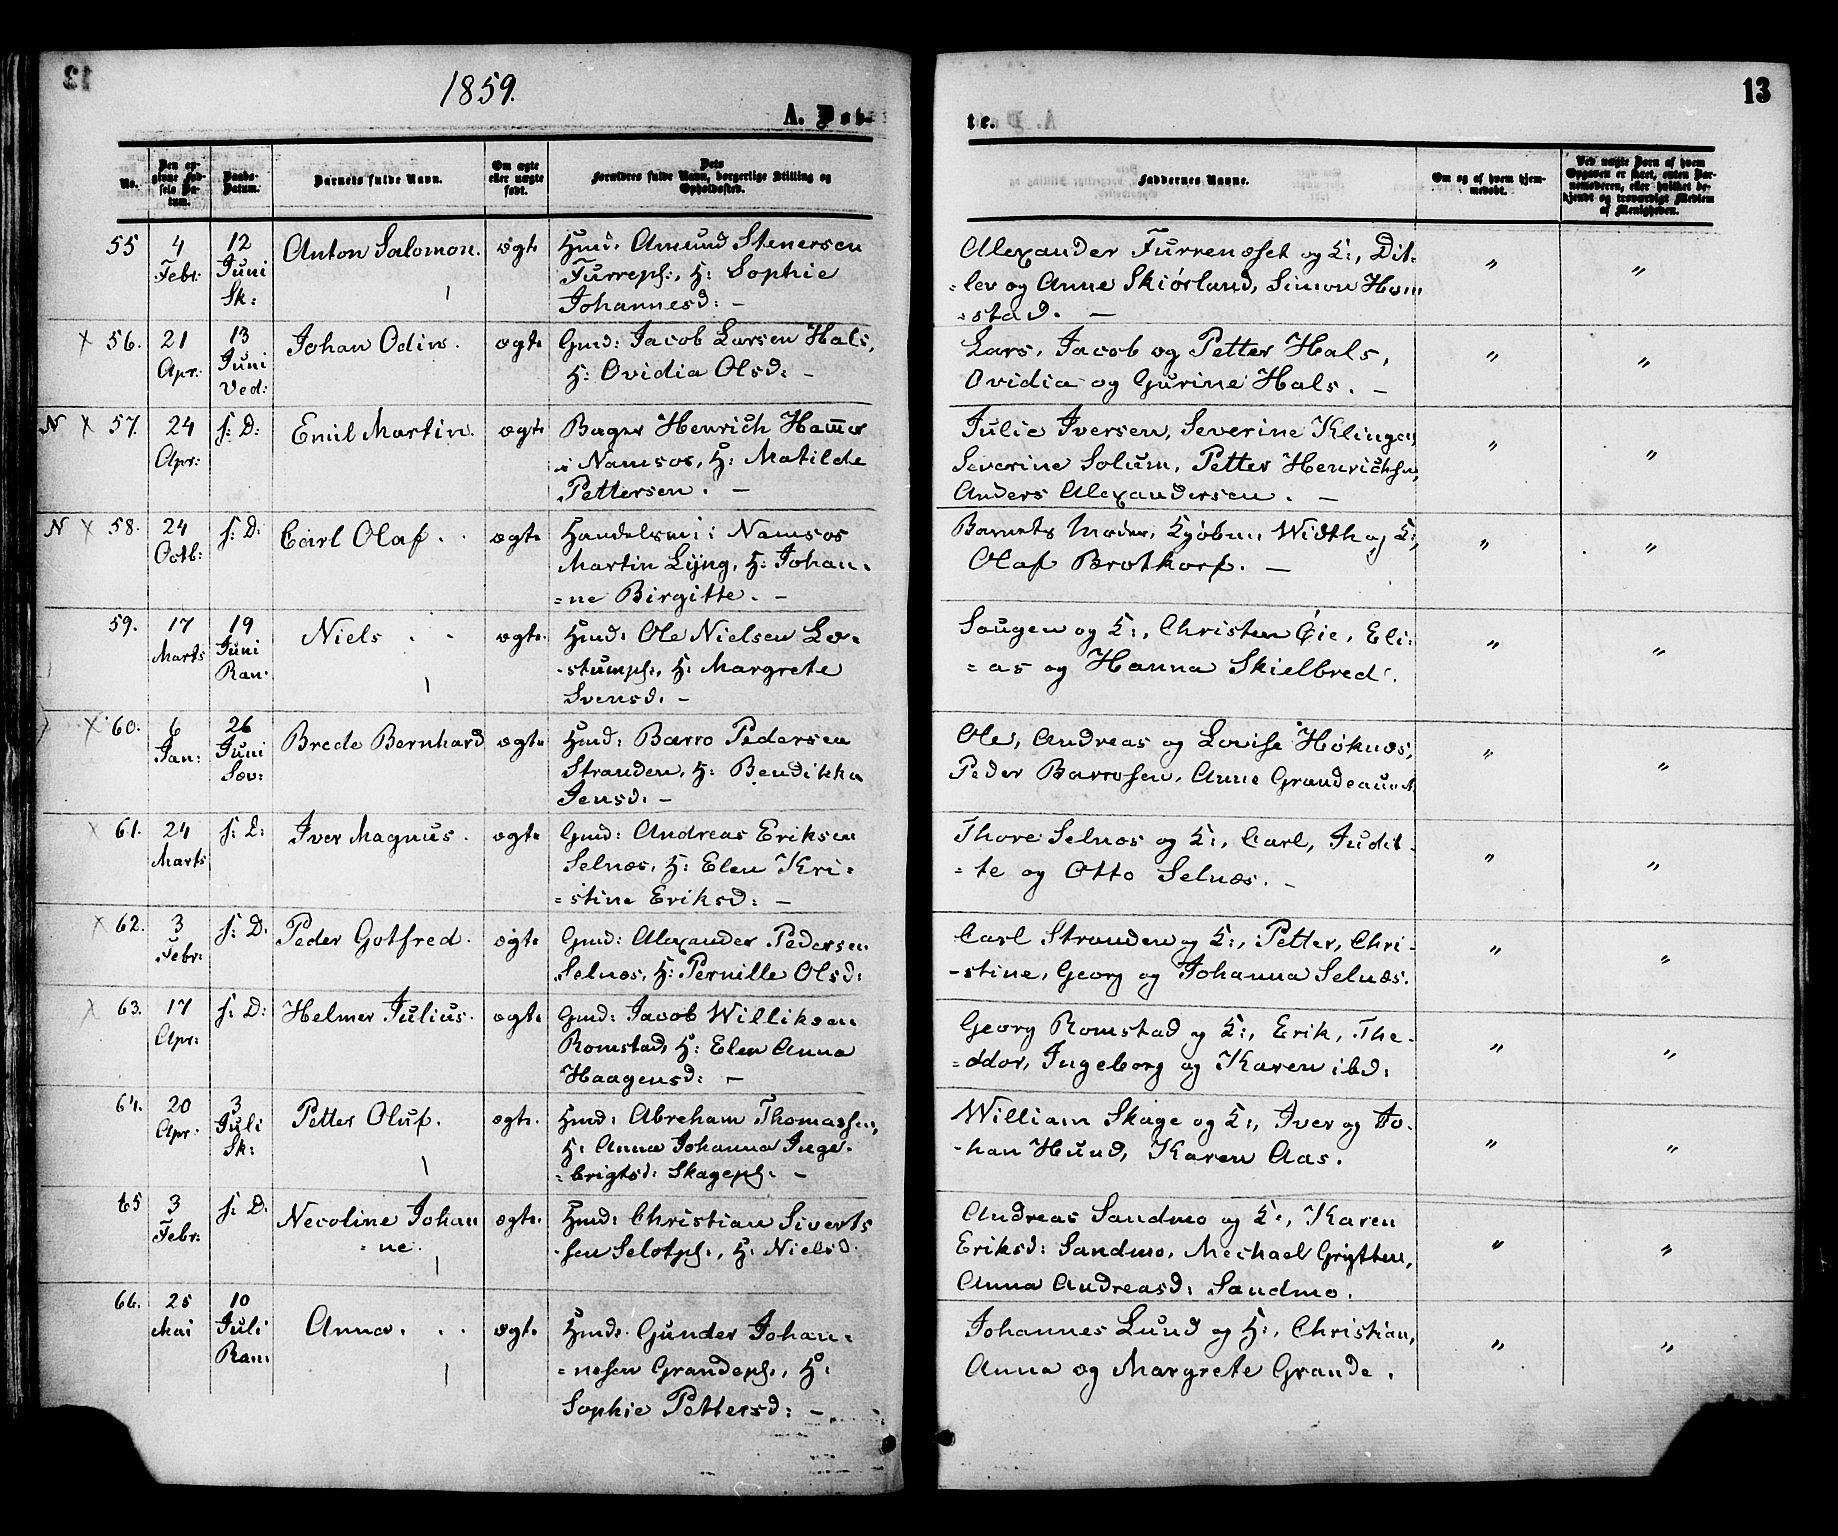 1859.
13
A. Døb-
te.
No.
Den op-
givne Fød-
sels Da-
tum.
Daabs-
Datum.
Barnets fulde Navn.
Om ægte
eller uægte
født.
Dets
Forældres fulde Navn, borgerlige Stilling og
Opholdssted.
Faddernes Navne.
Om og af hvem hjem-
medøbt.
Ved uægte Børn af hvem
Opgaven er skeet, enten Bar-
nemoderen, eller hvilket be-
kjendt og troværdigt Medlem
af Menigheden.
55 4 Febr: 12 Juni Sk: Anton Salomon. ægte Hmd: Amund Stenersen
Furrepl:, H: Sophie
Johannesd: –
Alexander Furrenoset og K:, Dit-
=lev og Anne Skiørland, Simon Hom
=stad. –
" "
× 56. 21 Apr: 13 Juni Ved: Johan Odin. ægte Gmd: Jacob Larsen Hals,
H: Ovidia Olsd: –
Lars, Jacob og Petter Hals,
Ovidia og Gurine Hals. –
" "
N × 57. 24 Apr: s: D: Emil Martin. ægte Bager Henrich Hammer
i Namsos, H: Matilde
Pettersen. –
Julie Iversen, Severine Klingen
Severine Solum, Petter Henrichsen,
Anders Alexandersen. –
" "
N × 58. 24 Octb: s: D: Carl Olaf. ægte Handelsm i Namsos
Martin Lyng, H: Johan-
=ne Birgitte. –
Barnets Moder, Kjøbm. Width og K:,
Olaf Brotkorp. –
" "
59. 17 Marts 19 Juni Ran: Niels ægte. Hmd: Ole Nielsen Lo-
-stumpl:, H: Margrete
Svensd: –
Saugen og K:, Christen Øie, Eli-
=as og Hanna Skielbred.
" "
× 60. 6 Jan: 26 Juni Sæv: Brede Bernhard ægte Hmd: Barro Pedersen
Stranden, H: Bendikka
Jensd: –
Ole, Andreas og Lovise Høknæs,
Peder Barrosen, Anne Grandeaunet
" "
× 61. 24 Marts s: D: Iver Magnus. ægte Gmd: Andreas Eriksen
Selnæs, H: Elen Kri-
=stine Eriksd: –
Thore Selnæs og K:, Carl, Judit-
=te og Otto Selnæs. –
" "
× 62. 3 Febr: s: D: Peder Gotfred. ægte Gmd: Alexander Pedersen
Selnæs, H: Pernille Olsd:
Carl Stranden og K:, Petter, Chri-
-stine, Georg og Johanna Selnæs.
" "
× 63. 17 Apr: s: D: Helmer Julius. ægte Gmd: Jacob Williksen
Romstad, H: Elen Anna
Haagensd: –
Georg Romstad og K:, Erik, The-
=odor, Ingeborg og Karen ibd:
" "
64. 20 Apr. 3 Juli Sk: Petter Oluf. ægte. Hmd: Abreham Thomassen,
H: Anna Johanna Inge-
=brigtsd: Skagepl: –
William Skage og K:, Iver og Jo-
-han Hund, Karen Aas.
" "
65 3 Febr: s: D: Necoline Johan
=ne. ægte. Hmd: Christian Siverts
-sen Selotpl:, H: Nielsd:
Andreas Sandmo og K:, Karen
Eriksd: Sandmo, Mechael Grytten,
Anna Andreasd: Sandmo.
" "
66. 25 Mai 10 Juli Ran: Anna. ægte. Hmd: Gunder Johan-
=nesen Grandepl:, H:
Sophie Pettersd: –
Johannes Lund og H:, Christian,
Anna og Margrete Grande.
" "